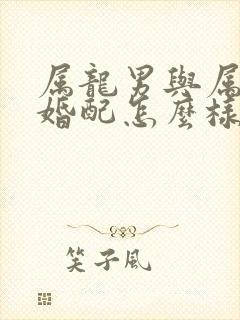 属龍男與属
婚配怎麼樣
笑子風